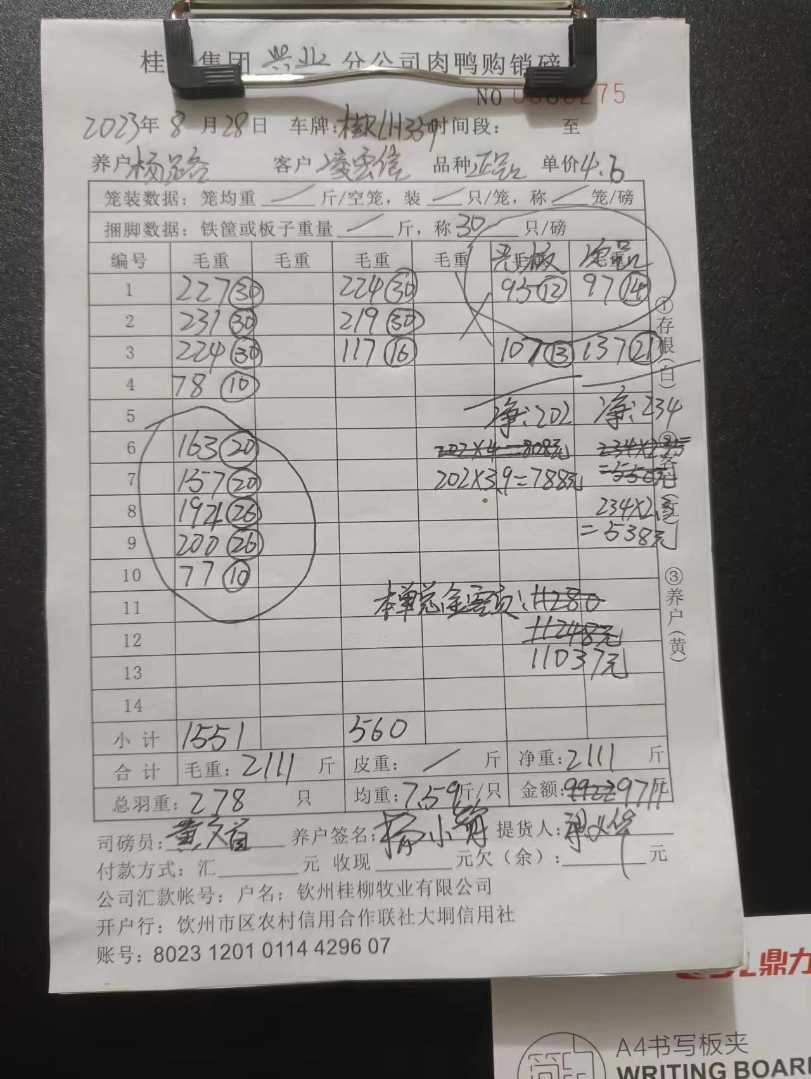 桂 集团 兴业 分公司肉鸭购销磅
NO 275
2023年 8 月 28日 车牌: 时间段: 至
养户 客户 凌云信 品种 正品 单价4.6
笼装数据: 笼均重 / 斤/空笼, 装 / 只/笼, 称 / 笼/磅
捆脚数据: 铁筐或板子重量 / 斤, 称 30 只/磅
编号 毛重 毛重 毛重 毛重
1 227 30 224 30 95 12 97 14
2 231 30 219 30
3 224 30 117 16 107 13 137 21
4 78 10
5 净:202 净:234
6 163 20 202×4=808元
7 157 20 202×3.9=788元
8 194 26 234×2.3
9 200 26 =538元
10 77 10
11 本单总金额为: 11280
12 11248元
13 11037元
14
小计 1551 560
合计 毛重: 2111 斤 皮重: / 斤 净重: 2111 斤
总羽重: 278 只 均重: 7.59 斤/只 金额:
司磅员: 养户签名: 提货人:
付款方式: 汇 元 收现 元欠(余): 元
公司汇款帐号: 户名: 钦州桂柳牧业有限公司
开户行: 钦州市区农村信用合作联社大垌信用社
账号: 8023 1201 0114 4296 07
①存根(白)
③养户(黄)
鼎力
A4书写板夹
WRITING BOAR